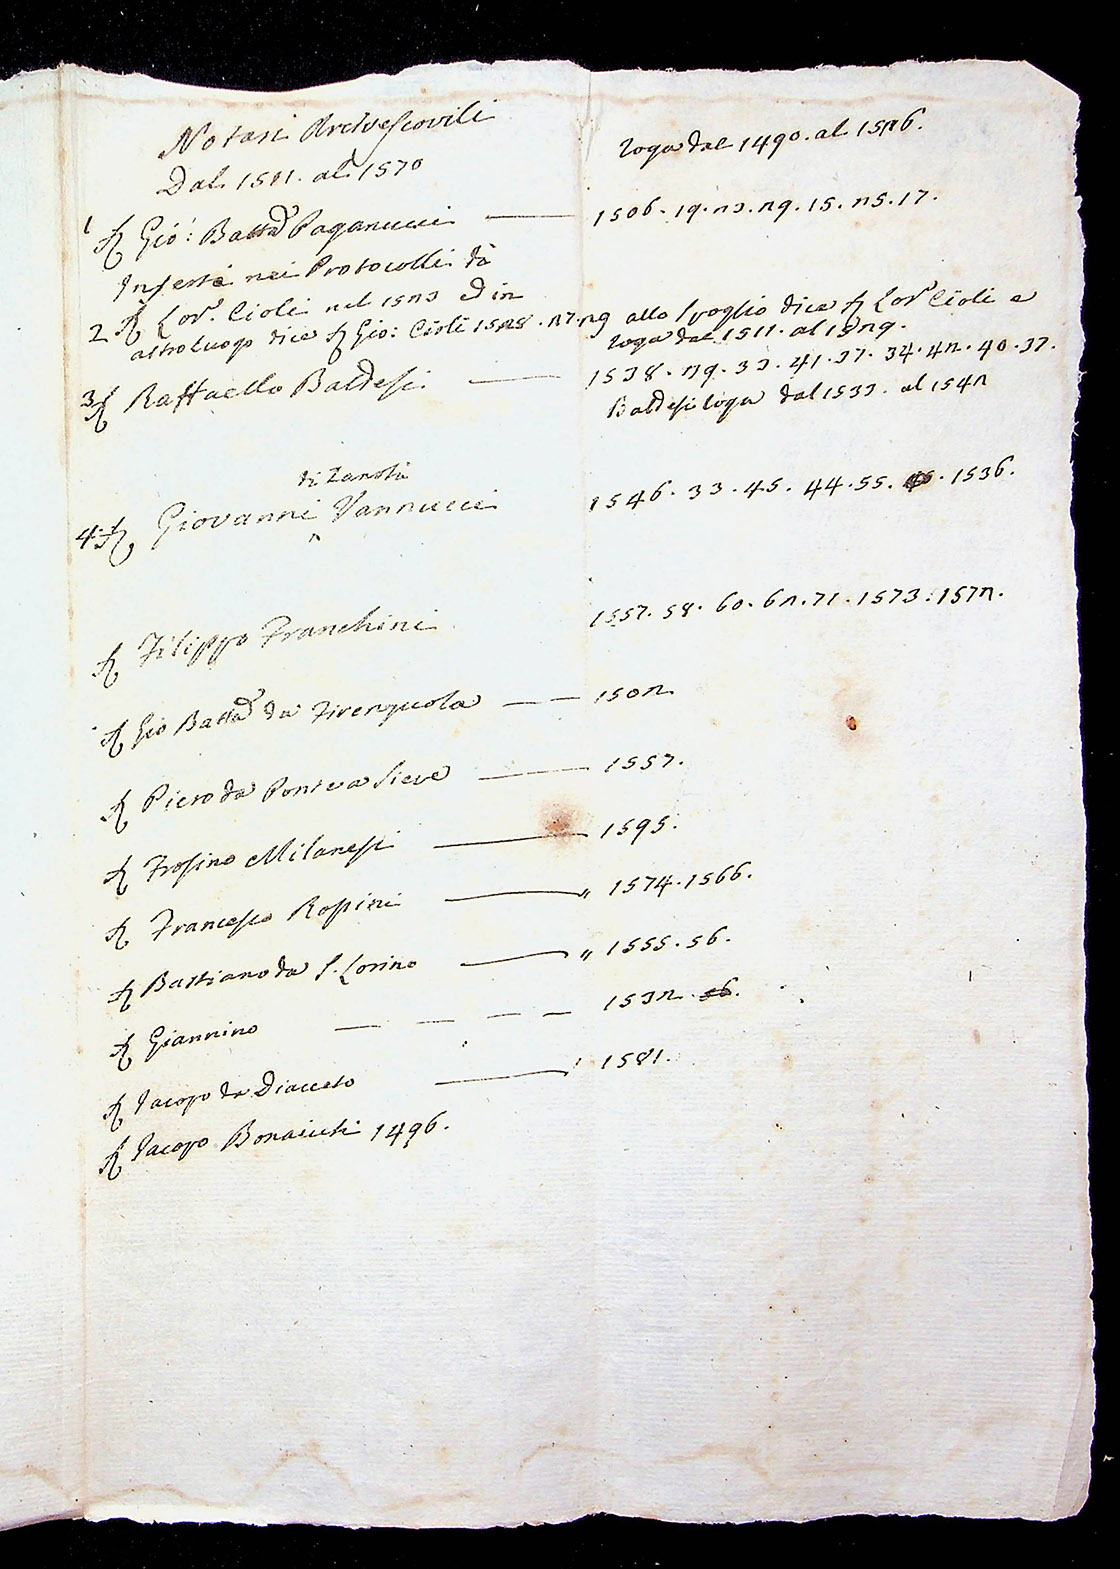 Notari Arcivescovili
Dal. 1511. al 1570
roga dal 1490. al 1526.
1 Sr Gio: Batta Paganucci — 1506. 19. 23. 29. 15. 25. 17.
Inserti nei Protocolli da
2 Sr Lor.o Cioli nel 1523 ed in
altro luogo dice Sr Gio: Cioli 1528. 27. 29 allo spoglio dice Sr Lor.o Cioli e
roga dal 1511. al 1529.
3 Sr Raffaello Baldesi — 1538. 29. 33. 41. 37. 34. 42. 40. 37.
Baldesi roga dal 1533. al 1542
di Zanobi
4 Sr Giovanni ^ Vannucci 1546. 33. 45. 44. 55. 1536.
Sr Filippo Franchini 1557. 58. 60. 62. 71. 1573. 1572.
Sr Gio Batta da Firenzuola — — 1502
Sr Piero da Ponte a Sieve — 1557.
Sr Frosino Milanesi — 1595.
Sr Francesco Rossini — „ 1574. 1566.
Sr Bastiano da S. Lorino — „ 1555. 56.
Sr Giannino — — — — 1532. 56.
Sr Jacopo da Diacceto — 1581.
Sr Jacopo Bonaiuti 1496.